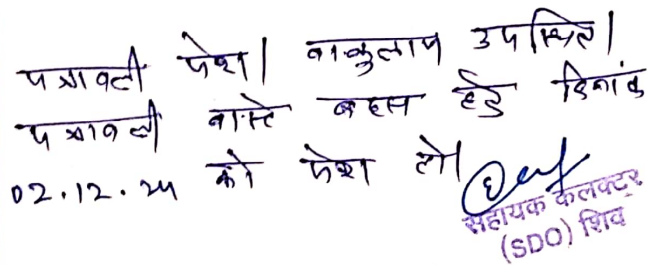 पत्रावली पेश। वाकुलाय उपस्थित।
पत्रावली वास्ते बहस हेतु दिनांक
02.12.24 को पेश हो।
सहायक कलक्टर
(SDO) शिव